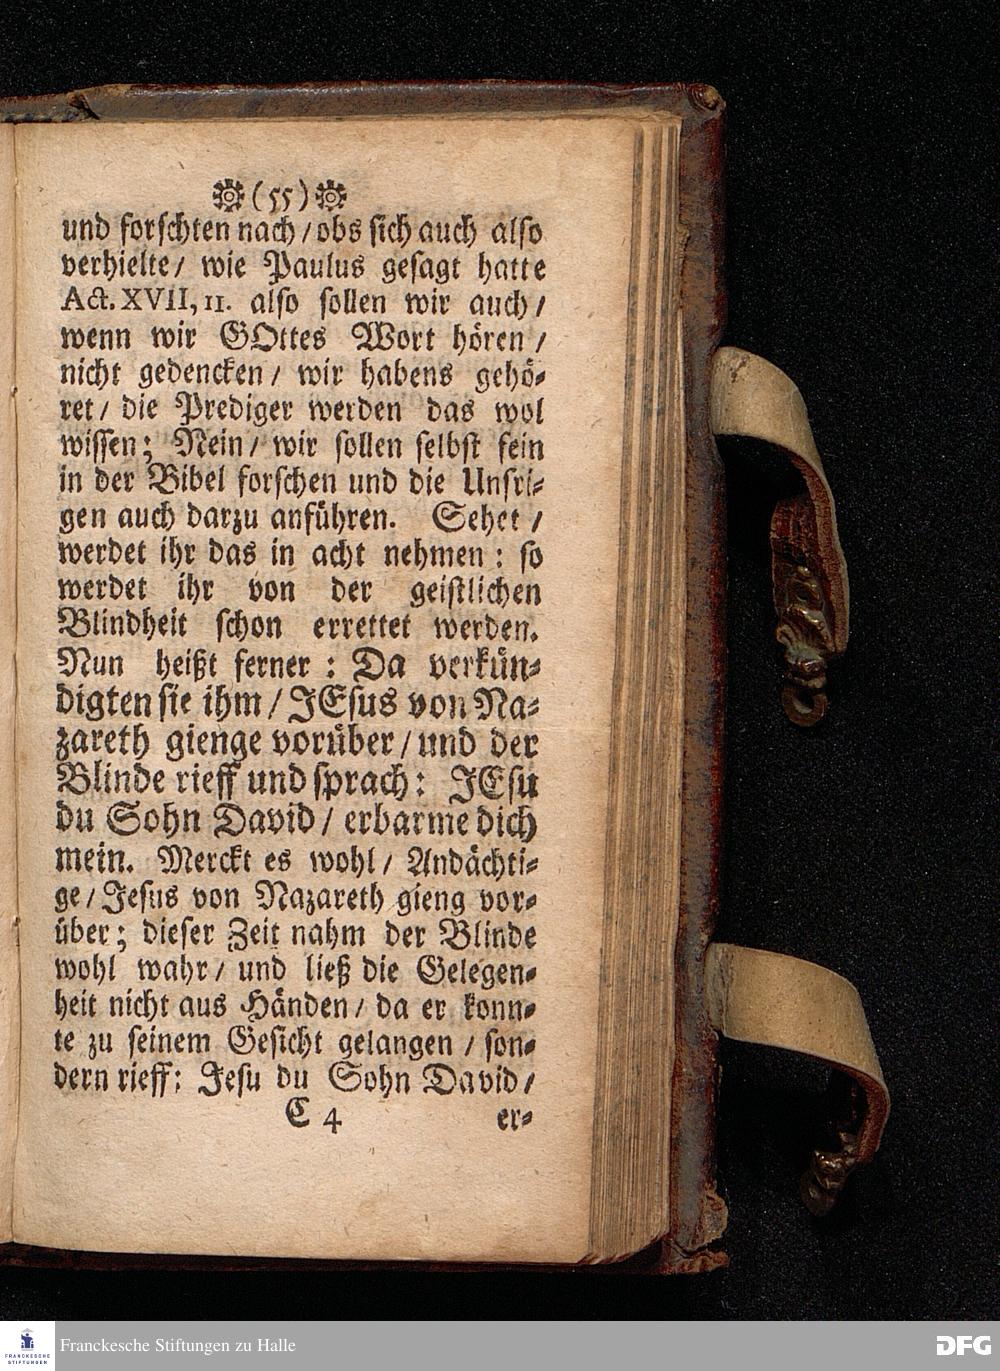 (55)
und forschten nach / obs sich auch also
verhielte / wie Paulus gesagt hatte
Act. XVII, 11. also sollen wir auch /
wenn wir GOttes Wort hören /
nicht gedencken / wir habens gehö-
ret / die Prediger werden das wol
wissen; Nein / wir sollen selbst fein
in der Bibel forschen und die Unsri-
gen auch darzu anführen. Sehet /
werdet ihr das in acht nehmen: so
werdet ihr von der geistlichen
Blindheit schon errettet werden.
Nun heißt ferner: Da verkün-
digten sie ihm / JEsus von Na-
zareth gienge vorüber / und der
Blinde rieff und sprach: JEsu
du Sohn David / erbarme dich
mein. Merckt es wohl / Andächti-
ge / Jesus von Nazareth gieng vor-
über; dieser Zeit nahm der Blinde
wohl wahr / und ließ die Gelegen-
heit nicht aus Händen / da er konn-
te zu seinem Gesicht gelangen / son-
dern rieff: Jesu du Sohn David /
C 4 er-
FRANCKESCHE
STIFTUNGEN
Franckesche Stiftungen zu Halle
DFG